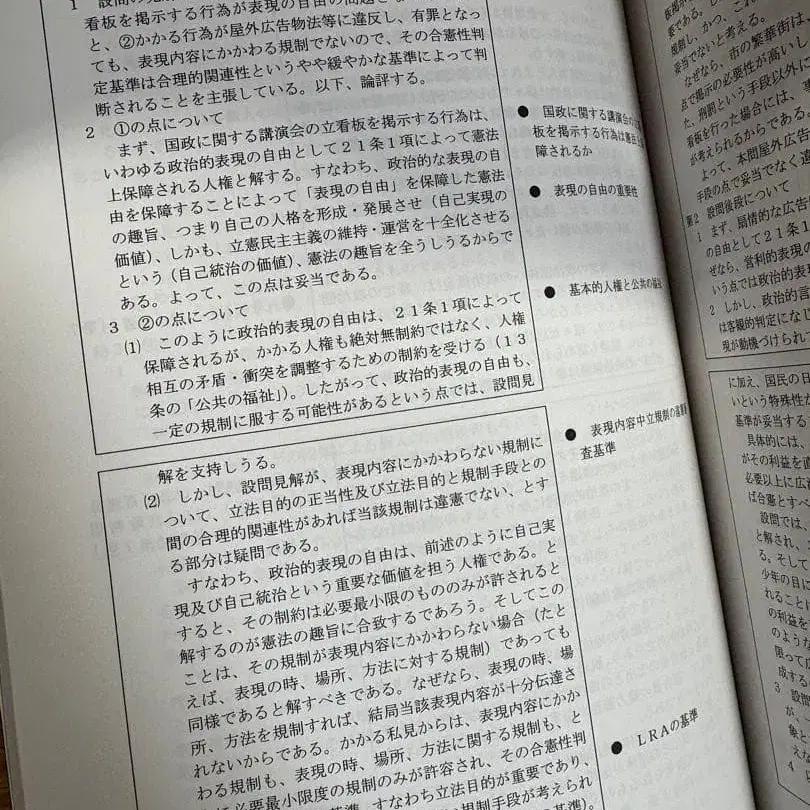 1 設問の見
看板を掲示する行為が表現の自由の問題と
と、②かかる行為が屋外広告物法等に違反し、有罪となっ
ても、表現内容にかかわる規制でないので、その合憲性判
定基準は合理的関連性というやや緩やかな基準によって判
断されることを主張している。以下、論評する。
2 ①の点について
まず、国政に関する講演会の立看板を掲示する行為は、
いわゆる政治的表現の自由として21条1項によって憲法
上保障される人権と解する。すなわち、政治的な表現の自
由を保障することによって「表現の自由」を保障した憲法
の趣旨、つまり自己の人格を形成・発展させ（自己実現の
価値）、しかも、立憲民主主義の維持・運営を十全化させる
という（自己統治の価値）、憲法の趣旨を全うしうるからで
ある。よって、この点は妥当である。
3 ②の点について
(1) このように政治的表現の自由は、21条1項によって
保障されるが、かかる人権も絶対無制約ではなく、人権
相互の矛盾・衝突を調整するための制約を受ける（13
条の「公共の福祉」）。したがって、政治的表現の自由も、
一定の規制に服する可能性があるという点では、設問見
解を支持しうる。
(2) しかし、設問見解が、表現内容にかかわらない規制に
ついて、立法目的の正当性及び立法目的と規制手段との
間の合理的関連性があれば当該規制は違憲でない、とす
る部分は疑問である。
すなわち、政治的表現の自由は、前述のように自己実
現及び自己統治という重要な価値を担う人権である。と
すると、その制約は必要最小限のもののみが許されると
解するのが憲法の趣旨に合致するであろう。そしてこの
ことは、その規制が表現内容にかかわらない場合（たと
えば、表現の時、場所、方法に対する規制）であっても
同様であると解すべきである。なぜなら、表現の時、場
所、方法を規制すれば、結局当該表現内容が十分伝達さ
れないからである。かかる私見からは、表現内容にかか
わる規制も、表現の時、場所、方法に関する規制も、と
必要最小限度の規制のみが許容され、その合憲性判
基準、すなわち立法目的が重要であり、
規制手段が考えられ
● 国政に関する講演会の立
板を掲示する行為は憲法上
障されるか
● 表現の自由の重要性
● 基本的人権と公共の福祉
● 表現内容中立規制の違憲審
査基準
● LRAの基準
要である。
規制し、かつ、これ
妥当でないと考える。
なぜなら、市の繁華街は、
点で掲示の必要性が高いし、
た、刑罰という手段以外に
看板を行った場合には、事
が考えられるからである。
よって、本問屋外広告
手段の点で妥当でなく違
第2 設問後段について
1 まず、扇情的な広告
の自由として21条1
ぜなら、営利的表現の
いう点では政治的表
2 しかし、政治的言
は客観的判定になじ
現が動機づけられて
に加え、国民の日
いという特殊性が
基準が妥当する
具体的には、
がその利益を直
必要以上に広
ば合憲とすべ
設問では、
と解され、
る。そして
少年の目に
れることに
の利益を
のような
限って
成する
3 設問
が、
象と
えな
4